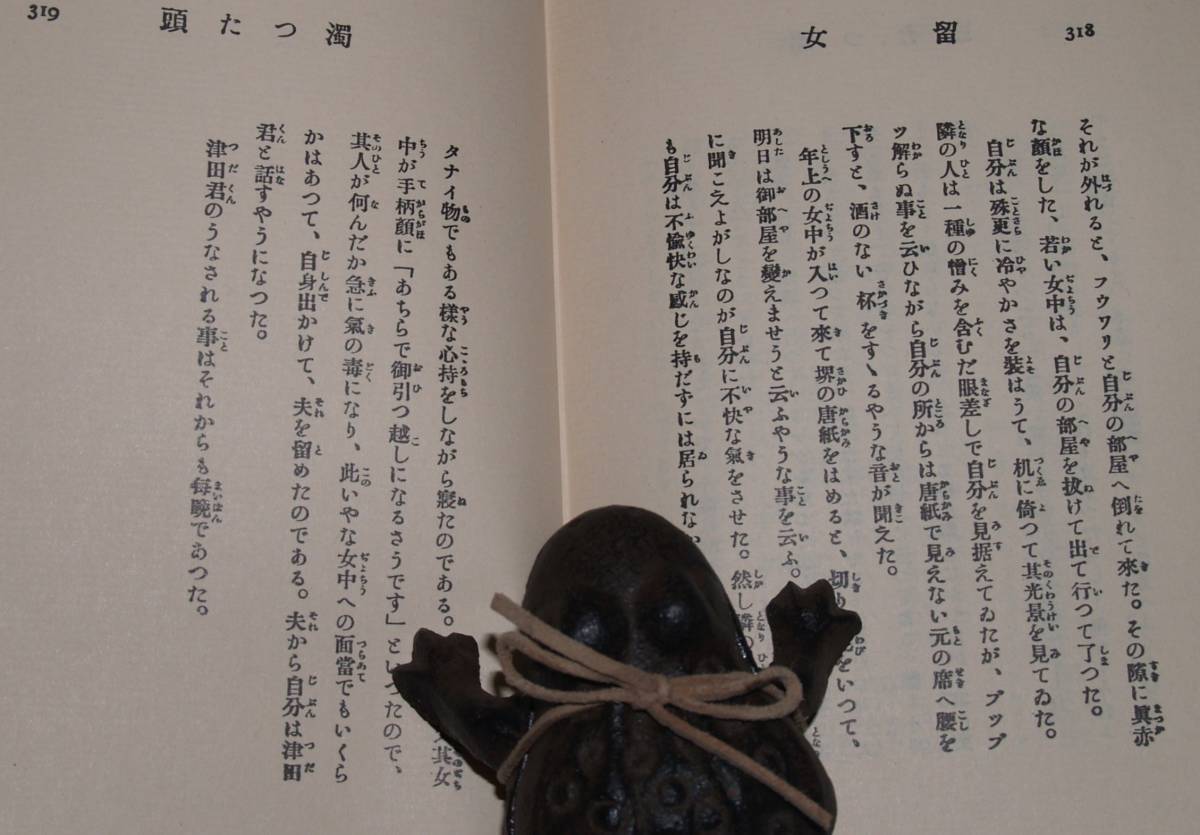 318
留女
それが外れると、フウワリと自分の部屋へ倒れて來た。その隙に眞赤
な顔をした、若い女中は、自分の部屋を拔けて出て行つて了つた。
自分は殊更に冷やかさを裝はうて、机に倚つて其光景を見てゐた。
隣の人は一種の憎みを含むだ眼差しで自分を見据えてゐたが、プップ
ツ解らぬ事を云ひながら自分の所からは唐紙で見えない元の席へ腰を
下すと、酒のない杯をすゝるやうな音が聞えた。
年上の女中が入つて來て堺の唐紙をはめると、切りをいつて、
明日は御部屋を變えませうと云ふやうな事を云ふ。
に聞こえよがしなのが自分に不快な氣をさせた。然し隣の
も自分は不愉快な感じを持たずには居られない
319
濁つた頭
タナイ物でもある樣な心持をしながら寢たのである。其女
中が手柄顔に「あちらで御引つ越しになるさうです」といつたので、
其人が何んだか急に氣の毒になり、此いやな女中への面當でもいくら
かはあつて、自身出かけて、夫を留めたのである。夫から自分は津田
君と話すやうになつた。
津田君のうなされる事はそれからも每晚であつた。